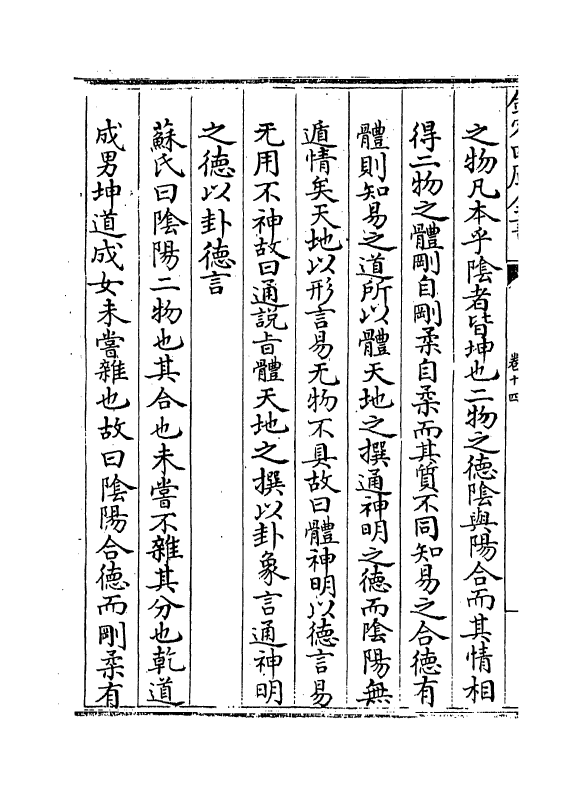 欽定四庫全書
卷十四
之物凡本乎陰者皆坤也二物之德陰與陽合而其情相
得二物之體剛自剛柔自柔而其質不同知易之合德有
體則知易之道所以體天地之撰通神明之德而陰陽無
遁情矣天地以形言易无物不具故曰體神明以德言易
无用不神故曰通說旨體天地之撰以卦象言通神明
之德以卦德言
蘇氏曰陰陽二物也其合也未嘗不雜其分也乾道
成男坤道成女未嘗雜也故曰陰陽合德而剛柔有